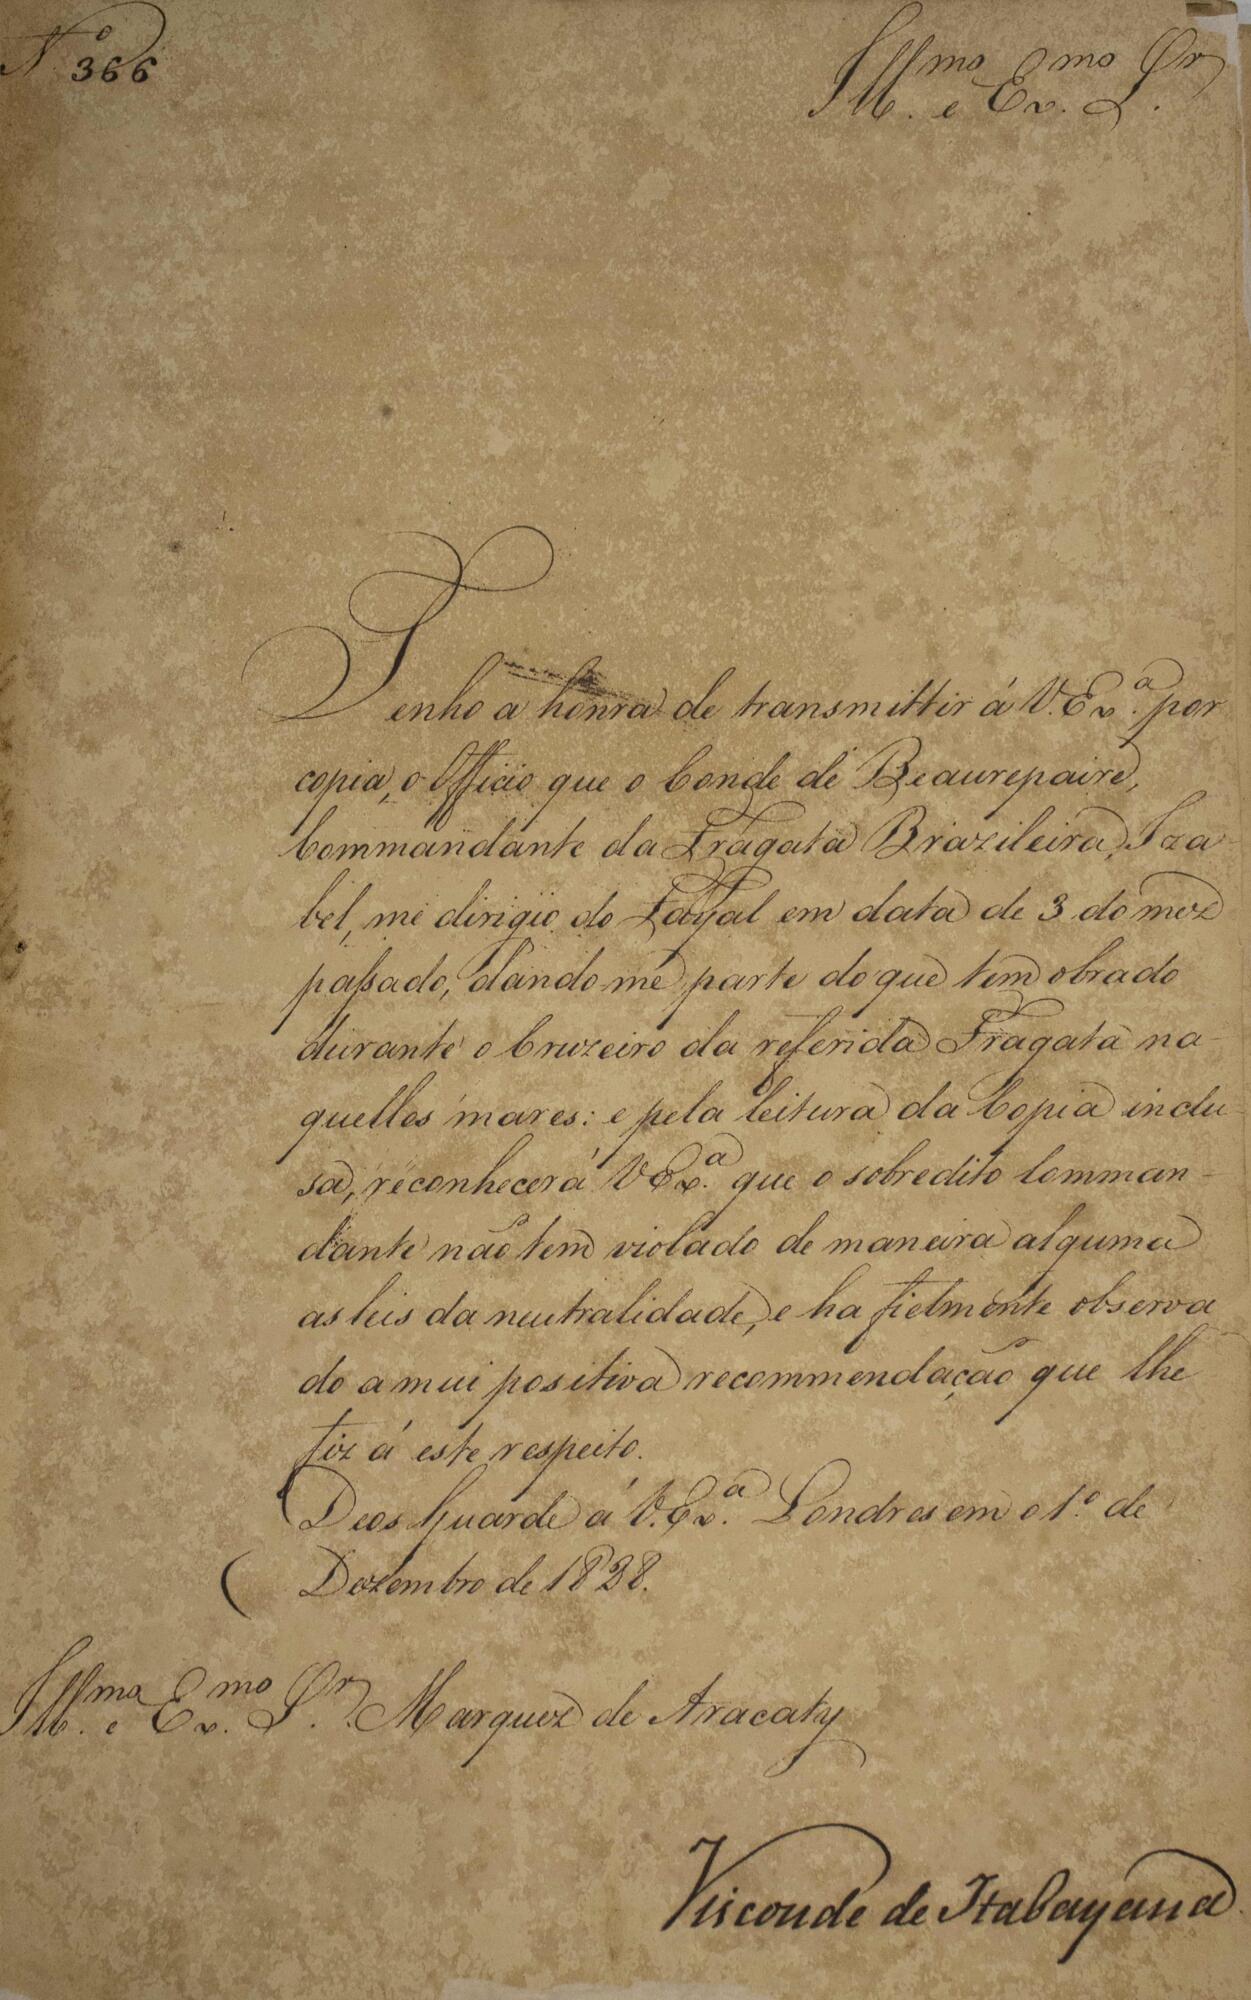 Nº 366
Illmo. e Exmo. Sr.
Tenho a honra de transmittir á V.Exª. por
copia, o Officio que o Conde de Beaurepaire,
Commandante da Fragata Brazileira, Iza
bel, me dirigio do Fayal em data de 3 do mez
passado, dando me parte do que tem obrado
durante o Cruzeiro da referida Fragata na-
quelles mares: e pela leitura da Copia inclu-
sa, reconhecerá V.Exª. que o sobredito Comman-
dante não tem violado de maneira alguma
as leis da neutralidade, e ha fielmente observa
do a mui positiva recommendação que lhe
fiz á este respeito.
Deos Guarde á V.Exª. Londres em o 1º. de
Dezembro de 1828.
Illmo. e Exmo. Sr. Marquez de Aracaty
Visconde de Itabayana